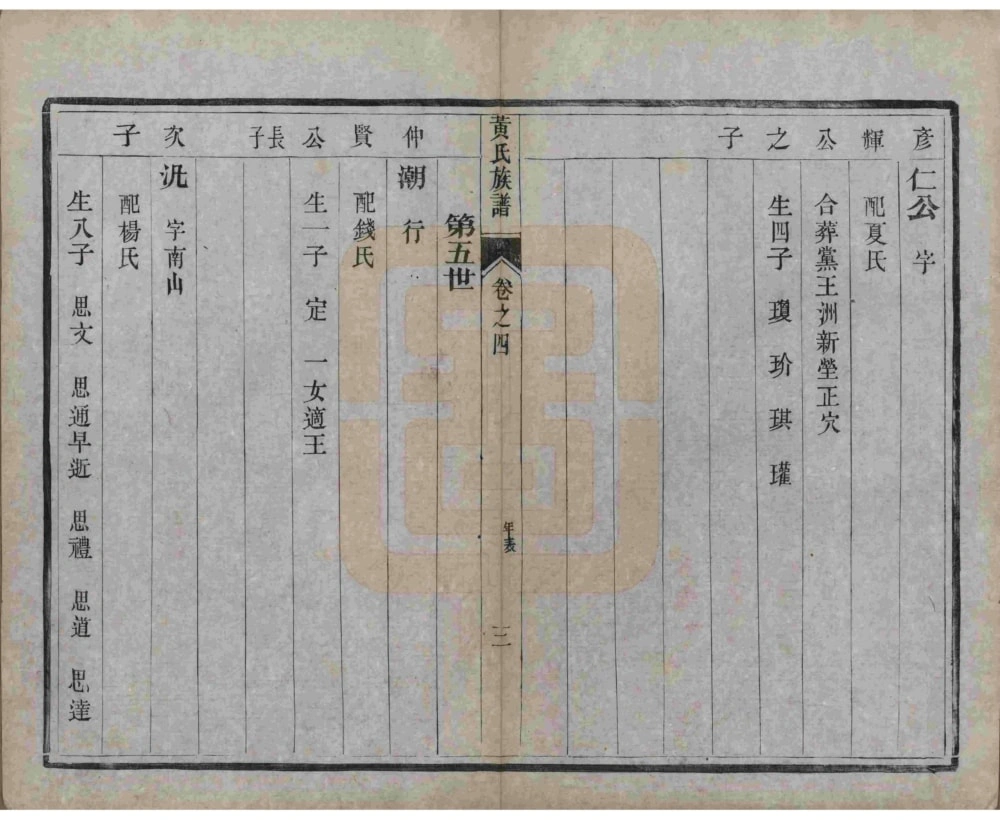 彦輝公之子
仁公 字
配夏氏
合葬黨王洲新塋正穴
生四子 瓊 玠 琪 瓘
黃氏族譜 卷之四 年表 三
第五世
仲賢公長子
潮 行
配錢氏
生一子 定 一女適王
次子
汎 字南山
配楊氏
生八子 思文 思通早逝 思禮 思道 思達